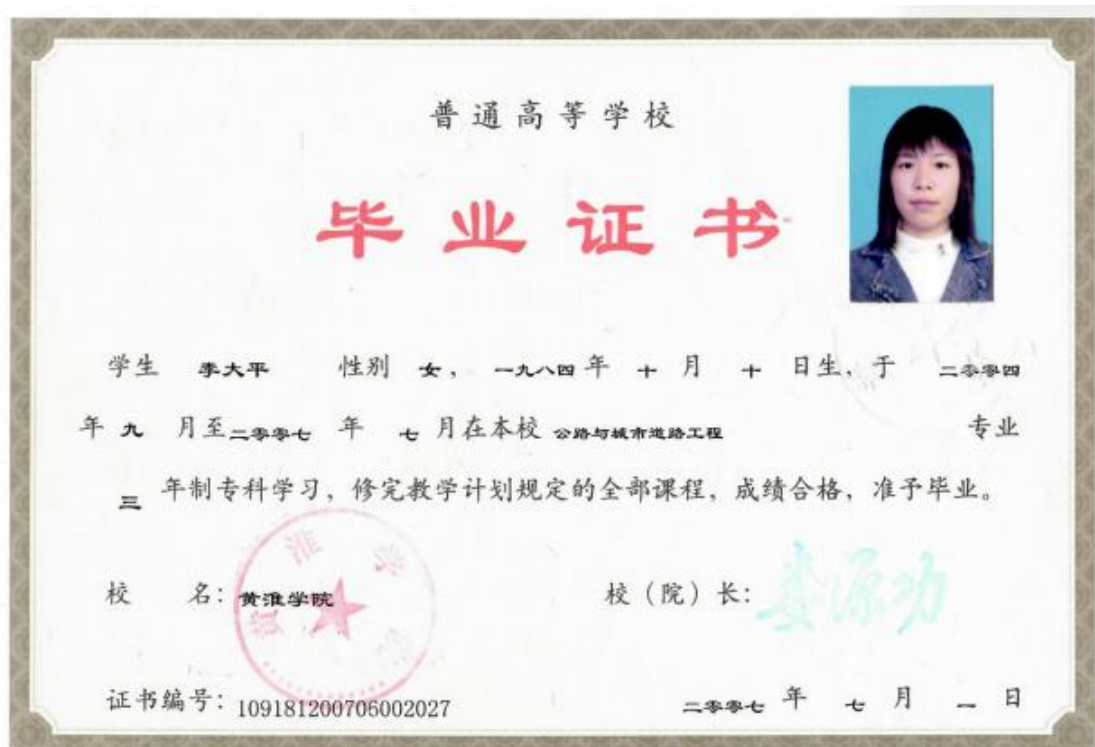 普通高等学校
毕业证书
学生 李大平 性别 女, 一九八四 年 十 月 十 日生, 于 二零零四
年 九 月至 二零零七 年 七 月在本校 公路与城市道路工程 专业
三 年制专科学习, 修完教学计划规定的全部课程, 成绩合格, 准予毕业。
校 名: 黄淮学院 校 (院) 长: 娄源功
黄淮学院
证书编号: 109181200706002027 二零零七 年 七 月 一 日